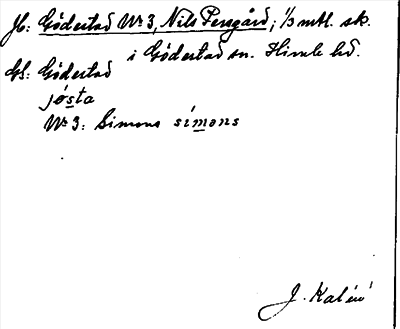 Jb: Gödestad Nr 3, Nils Persgård; 1/3 mtl. sk.
i Gödestad sn. Himle hd.
Gd: Gödestad
jösta
Nr 3: Simons simons
J. Kalén